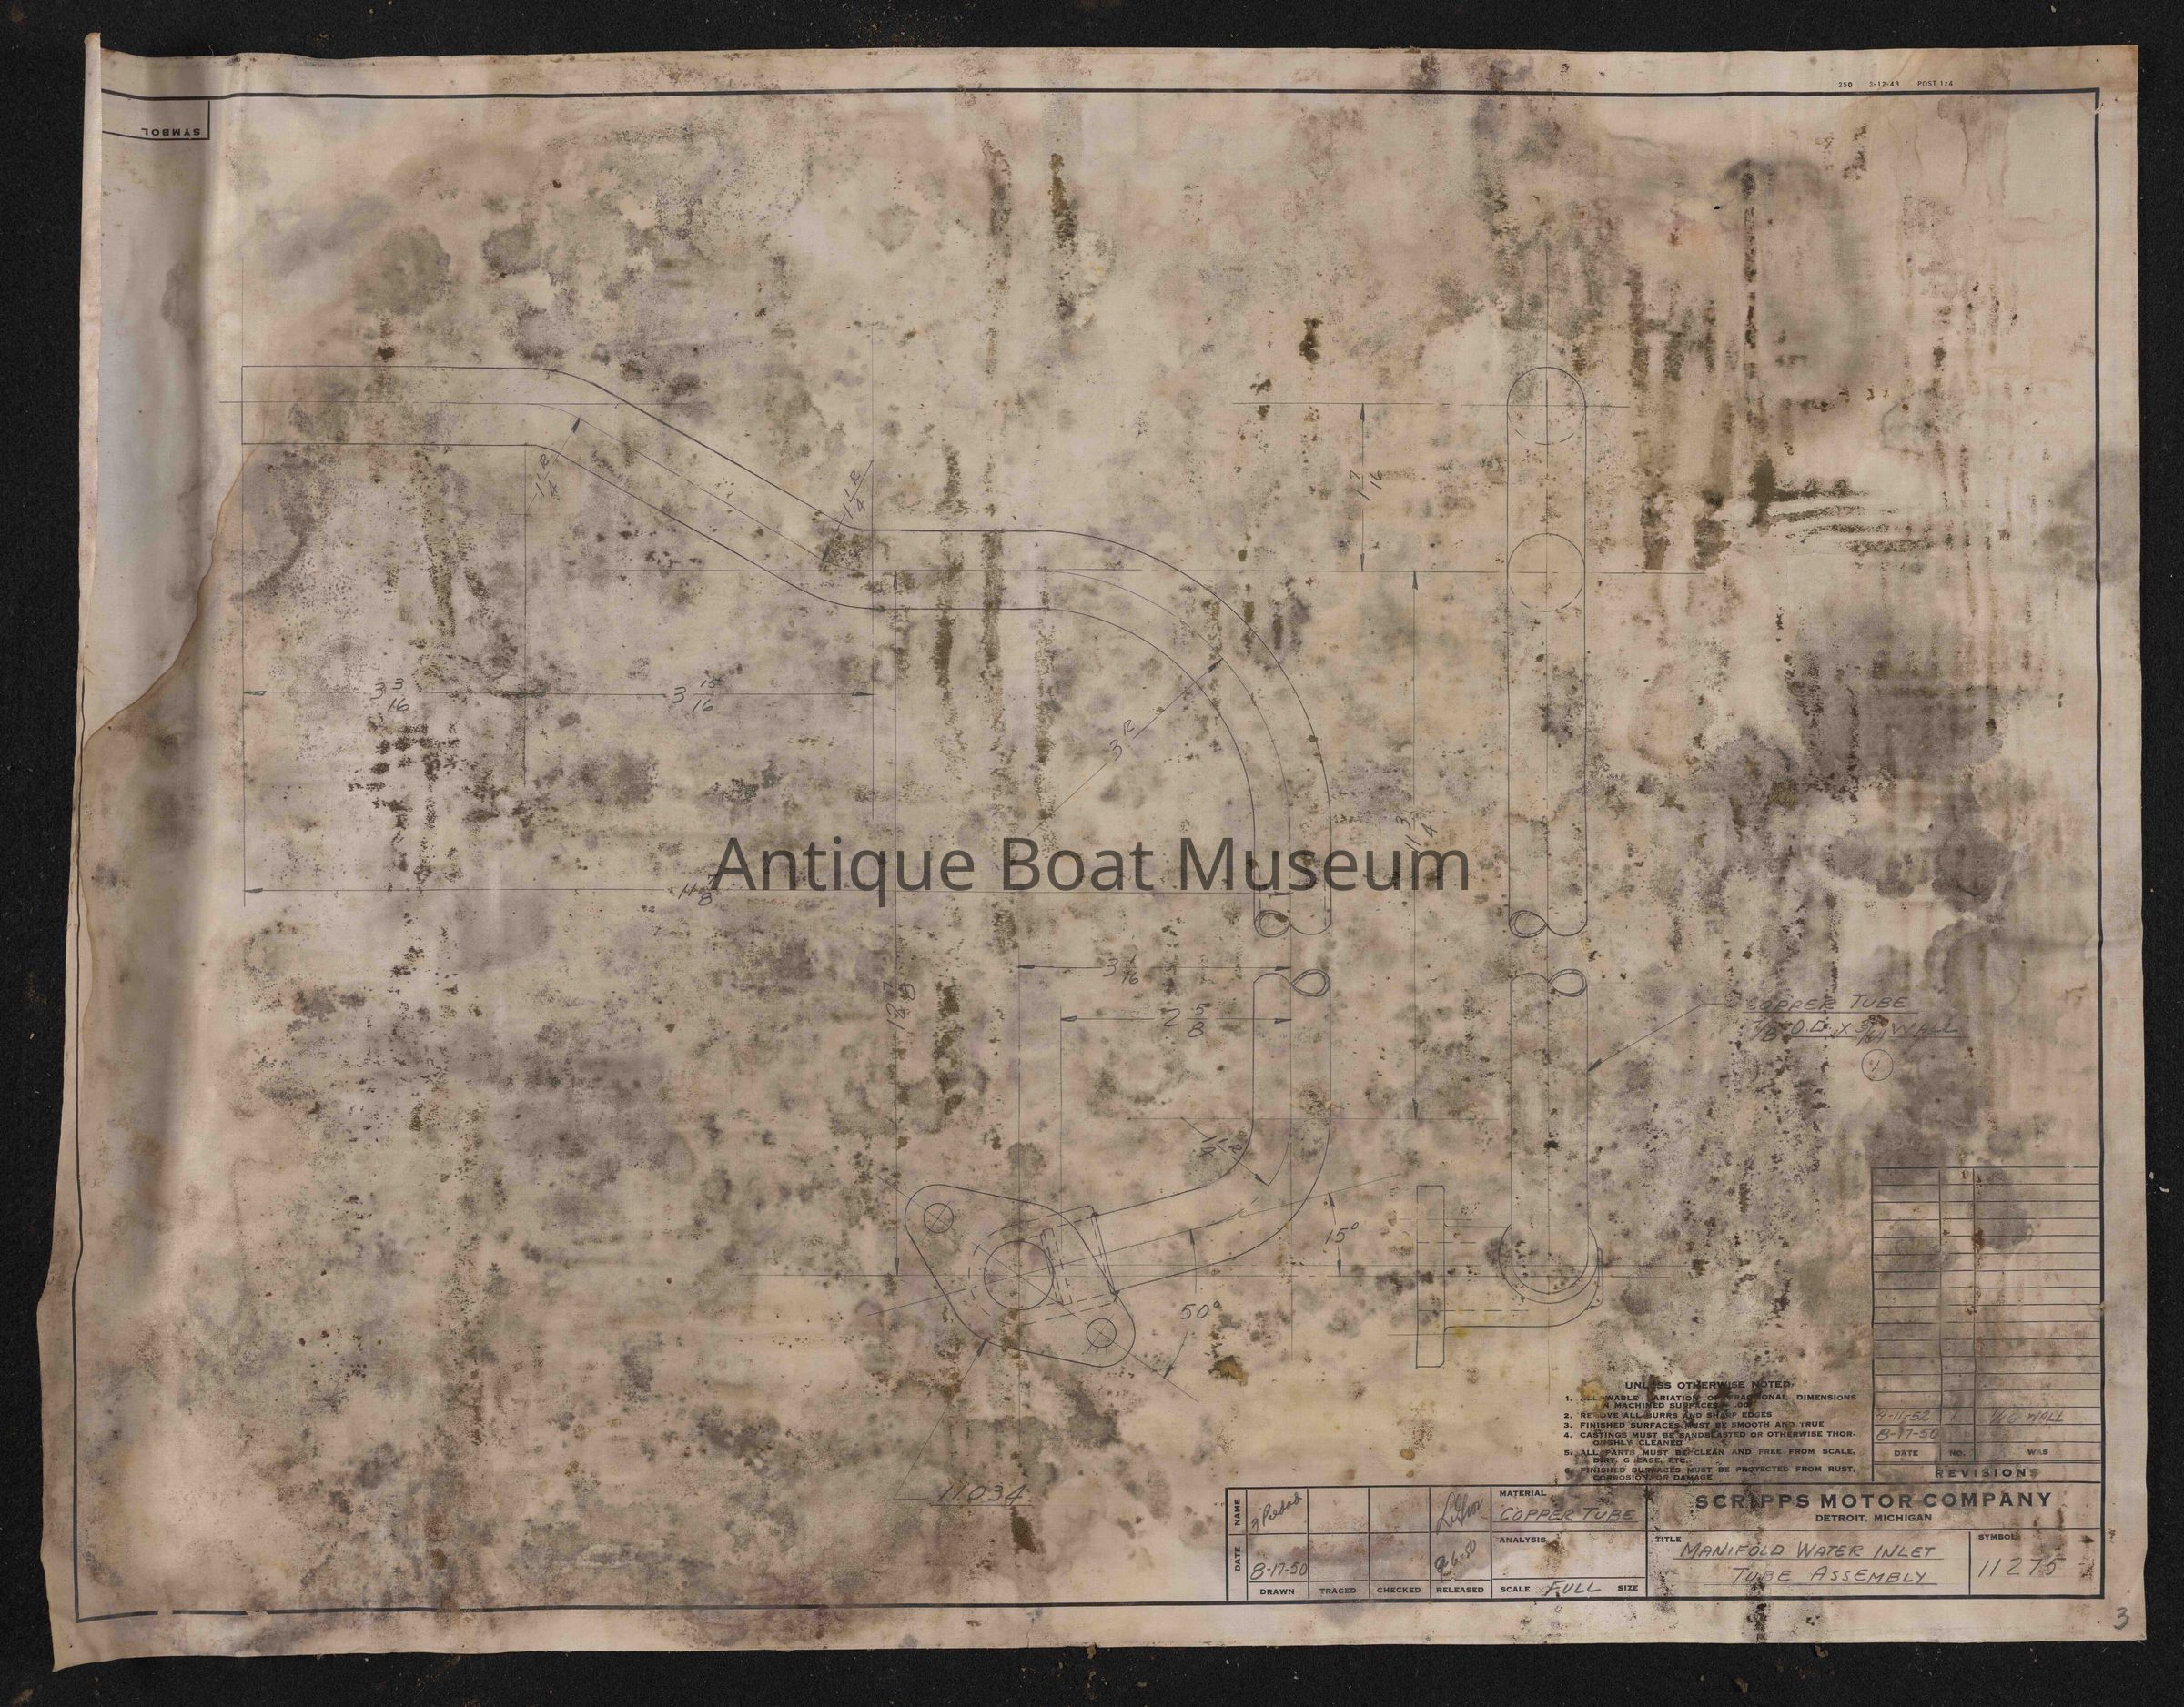 250 2-12-43 POST 124
SYMBOL
1 1/4 R
1 1/4 R
1 7/16
3 3/16
3 15/16
3 R
11 3/4
Antique Boat Museum
11 7/8
3 1/16
2 5/8
COPPER TUBE
7/8 O.D. X 3/64 WALL
1
15°
50°
11034
UNLESS OTHERWISE NOTED.
1. ALLOWABLE VARIATION OF FRACTIONAL DIMENSIONS
MACHINED SURFACES
2. REMOVE ALL BURRS AND SHARP EDGES
3. FINISHED SURFACES MUST BE SMOOTH AND TRUE
4. CASTINGS MUST BE SANDBLASTED OR OTHERWISE THOR-
OUGHLY CLEANED
5. ALL PARTS MUST BE CLEAN AND FREE FROM SCALE,
DIRT, GREASE, ETC.
6. FINISHED SURFACES MUST BE PROTECTED FROM RUST,
CORROSION, OR DAMAGE
4-11-52 1 1/16 WALL
8-17-50
DATE NO. WAS
REVISIONS
NAME
DATE 8-17-50 9-6-50
DRAWN TRACED CHECKED RELEASED
MATERIAL
COPPER TUBE
ANALYSIS
SCALE FULL SIZE
SCRIPPS MOTOR COMPANY
DETROIT, MICHIGAN
TITLE MANIFOLD WATER INLET
TUBE ASSEMBLY
SYMBOL
11275
3